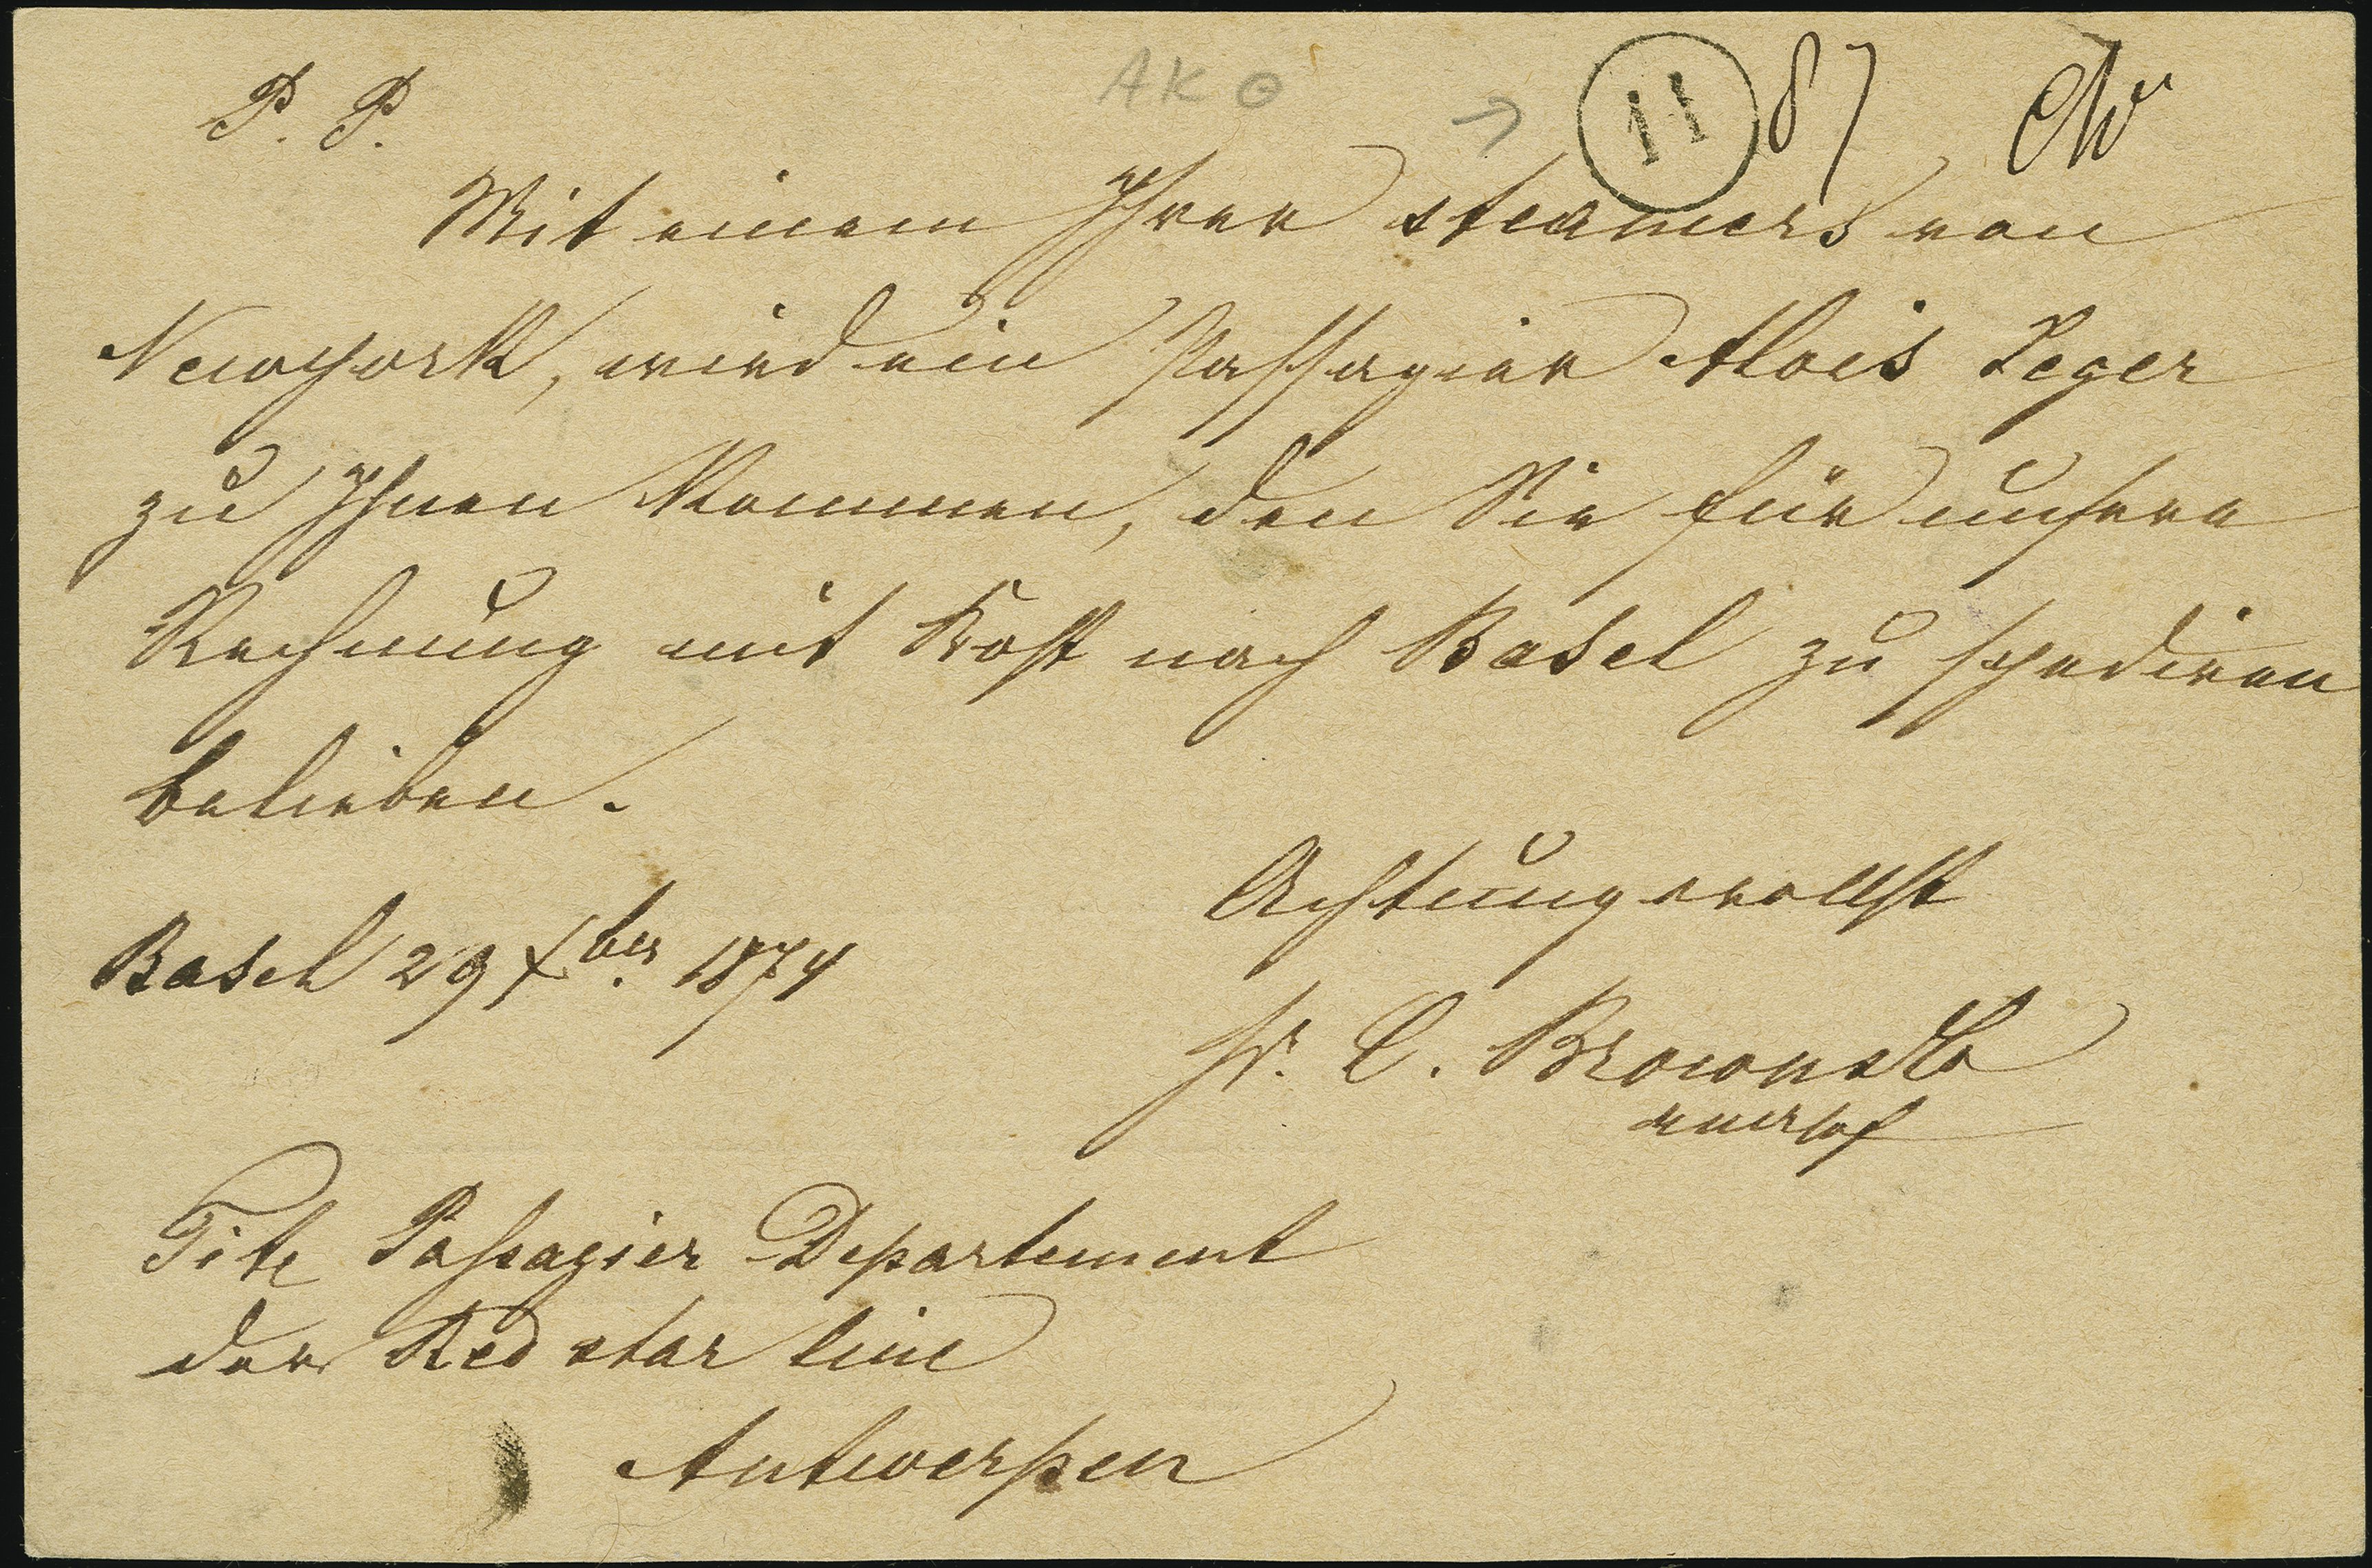 AK
11 87
P. P.
Mit einem Ihrer steamers von
Newyork, wird ein Passagier Alois Leger
zu Ihnen kommen, den Sie für unsere
Rechnung mit Kost nach Basel zu spediren
belieben.
Achtungsvollst
Basel 29 Xber. 1874
C. Brown
Tite Passagier Departement
der Red star line
Antwerpen